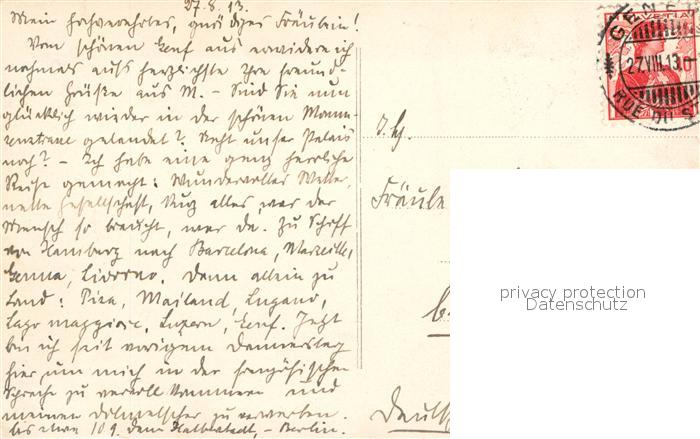 27.8.13.
Mein hochverehrtes, gnädiges Fräulein!
Vom schönen Genf aus erwidere ich
nochmals aufs herzlichste Ihre freund-
lichen Grüße aus M. - Sind Sie nun
glücklich wieder in der schönen
gelandet? Steht unser Palais
noch? - Ich habe eine ganz herrliche
Reise gemacht: Wundervolles Wetter,
nette Gesellschaft, kurz alles, was der
Mensch so braucht, war da. Zu Schiff
von Hamburg nach Barcelona, Marseille,
Genua, Livorno. Dann allein zu
Land: Pisa, Mailand, Lugano,
Lago maggiore, Luzern, Genf. Jetzt
bin ich seit vorigem Donnerstag
hier, um mich in der französischen
Sprache zu vervollkommnen und
meinen zu erwerben.
bis etwa 10.9. dann Halberstadt, - Berlin.
HELVETIA
GENÈ
27.VIII.13.
RUE DU S
Fräule
Deuts
privacy protection
Datenschutz